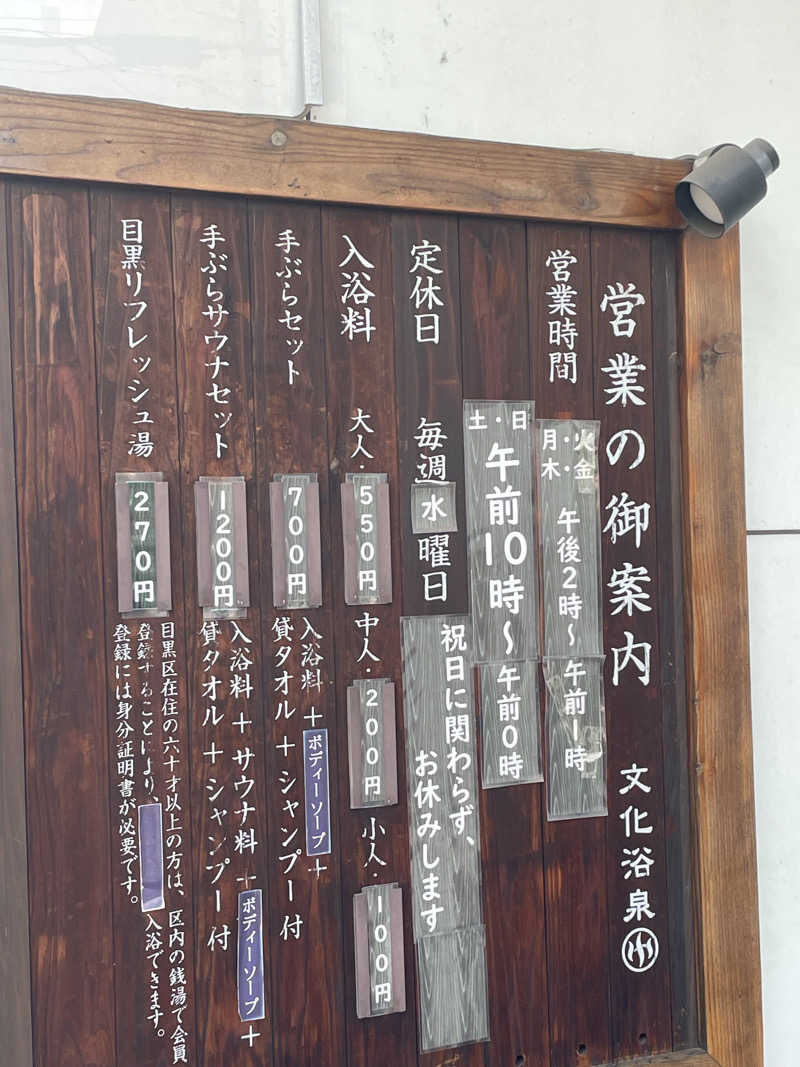 営業の御案内 文化浴泉
営業時間
月・火・木・金 午後2時〜午前1時
土・日 午前10時〜午前0時
定休日 毎週水曜日
祝日に関わらず、
お休みします
入浴料 大人・550円 中人・200円 小人・100円
手ぶらセット 700円
入浴料+ボディーソープ+
貸タオル+シャンプー付
手ぶらサウナセット 1200円
入浴料+サウナ料+ボディーソープ+
貸タオル+シャンプー付
目黒リフレッシュ湯 270円
目黒区在住の六十才以上の方は、区内の銭湯で会員
登録することにより、入浴できます。
登録には身分証明書が必要です。